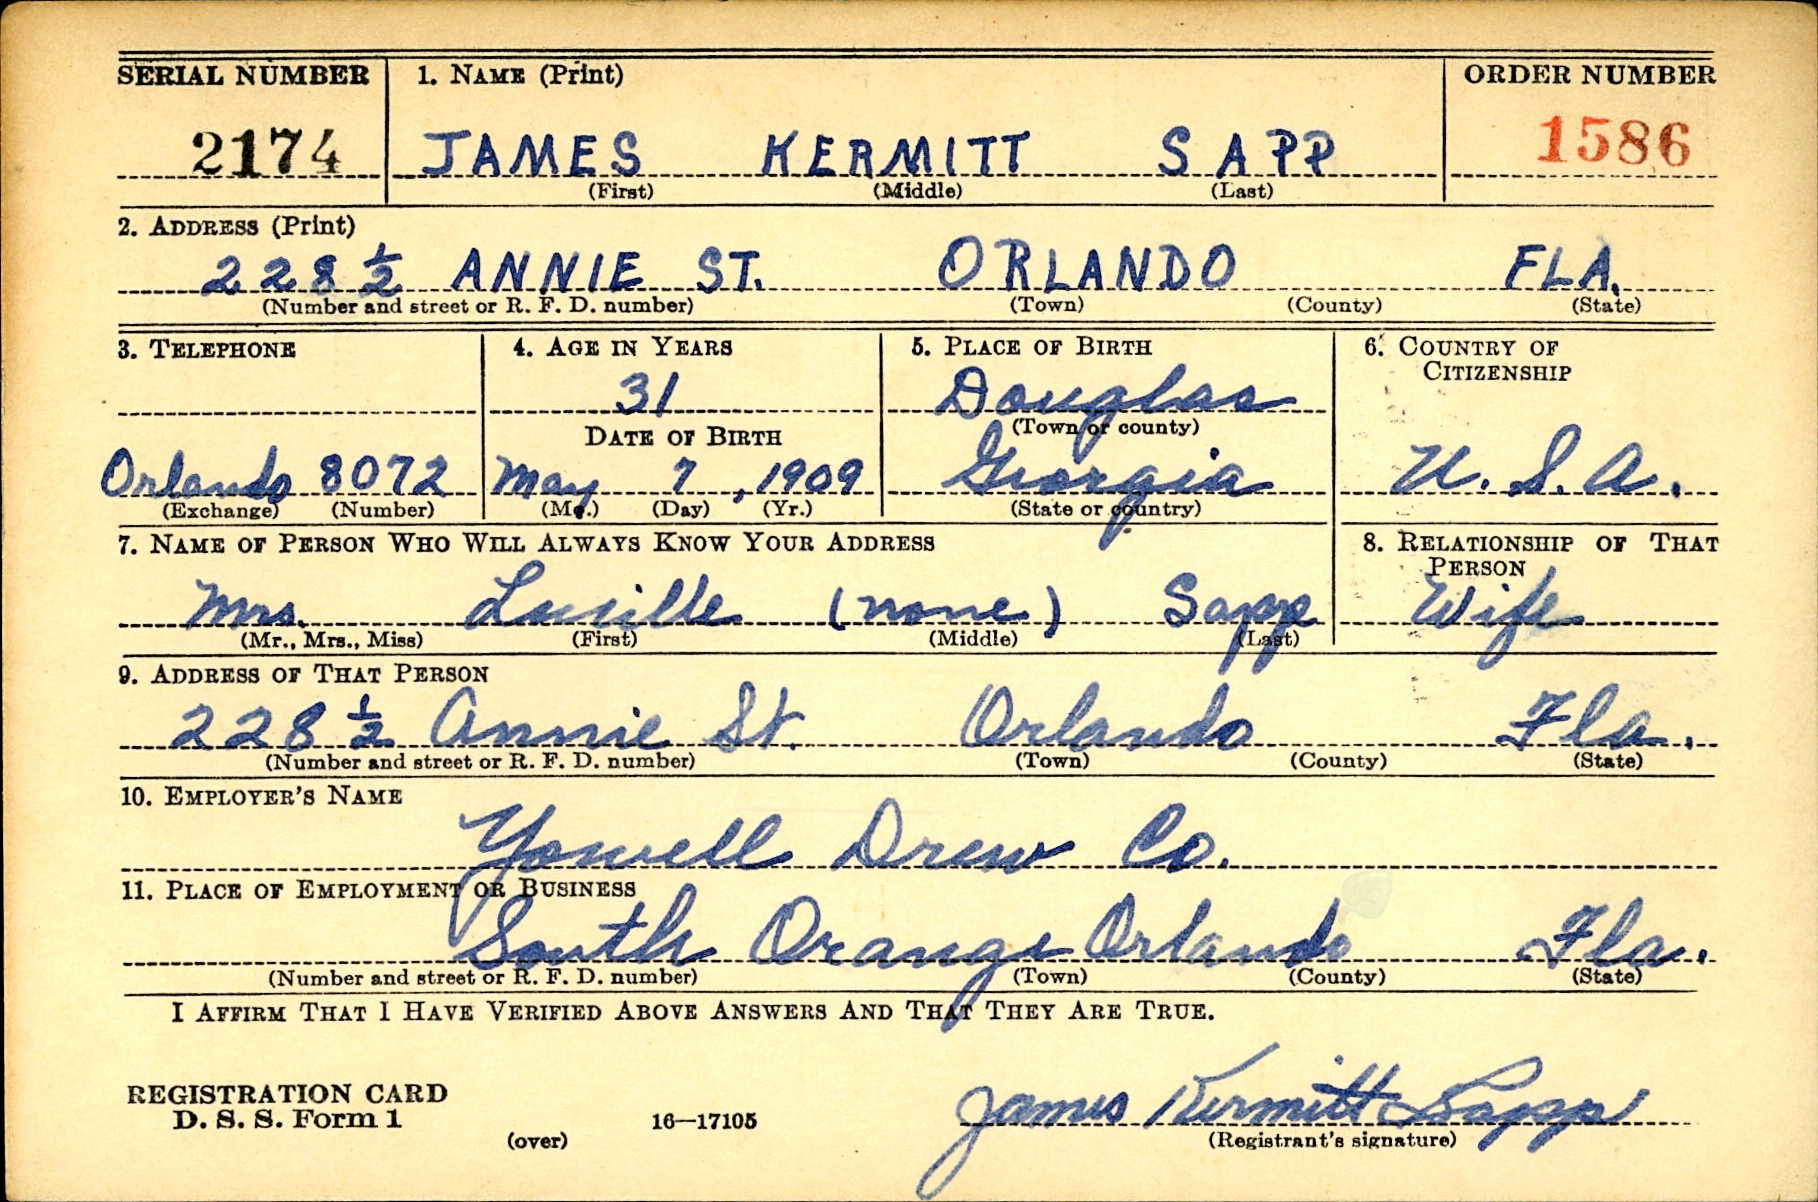 SERIAL NUMBER 1. NAME (Print) ORDER NUMBER
2174 JAMES KERMITT SAPP 1586
(First) (Middle) (Last)
2. ADDRESS (Print)
228 ½ ANNIE ST. ORLANDO FLA.
(Number and street or R. F. D. number) (Town) (County) (State)
3. TELEPHONE 4. AGE IN YEARS 5. PLACE OF BIRTH 6. COUNTRY OF
CITIZENSHIP
31 Douglas
DATE OF BIRTH (Town or county)
Orlando 8072 May 7, 1909 Georgia U. S. A.
(Exchange) (Number) (Mo.) (Day) (Yr.) (State or country)
7. NAME OF PERSON WHO WILL ALWAYS KNOW YOUR ADDRESS 8. RELATIONSHIP OF THAT
PERSON
Mrs. Lucille (none) Sapp Wife
(Mr., Mrs., Miss) (First) (Middle) (Last)
9. ADDRESS OF THAT PERSON
228 ½ Annie St. Orlando Fla.
(Number and street or R. F. D. number) (Town) (County) (State)
10. EMPLOYER'S NAME
Yowell Drew Co.
11. PLACE OF EMPLOYMENT OR BUSINESS
South Orange Orlando Fla.
(Number and street or R. F. D. number) (Town) (County) (State)
I AFFIRM THAT I HAVE VERIFIED ABOVE ANSWERS AND THAT THEY ARE TRUE.
REGISTRATION CARD
D. S. S. Form 1 16—17105 James Kermitt Sapp
(over) (Registrant's signature)